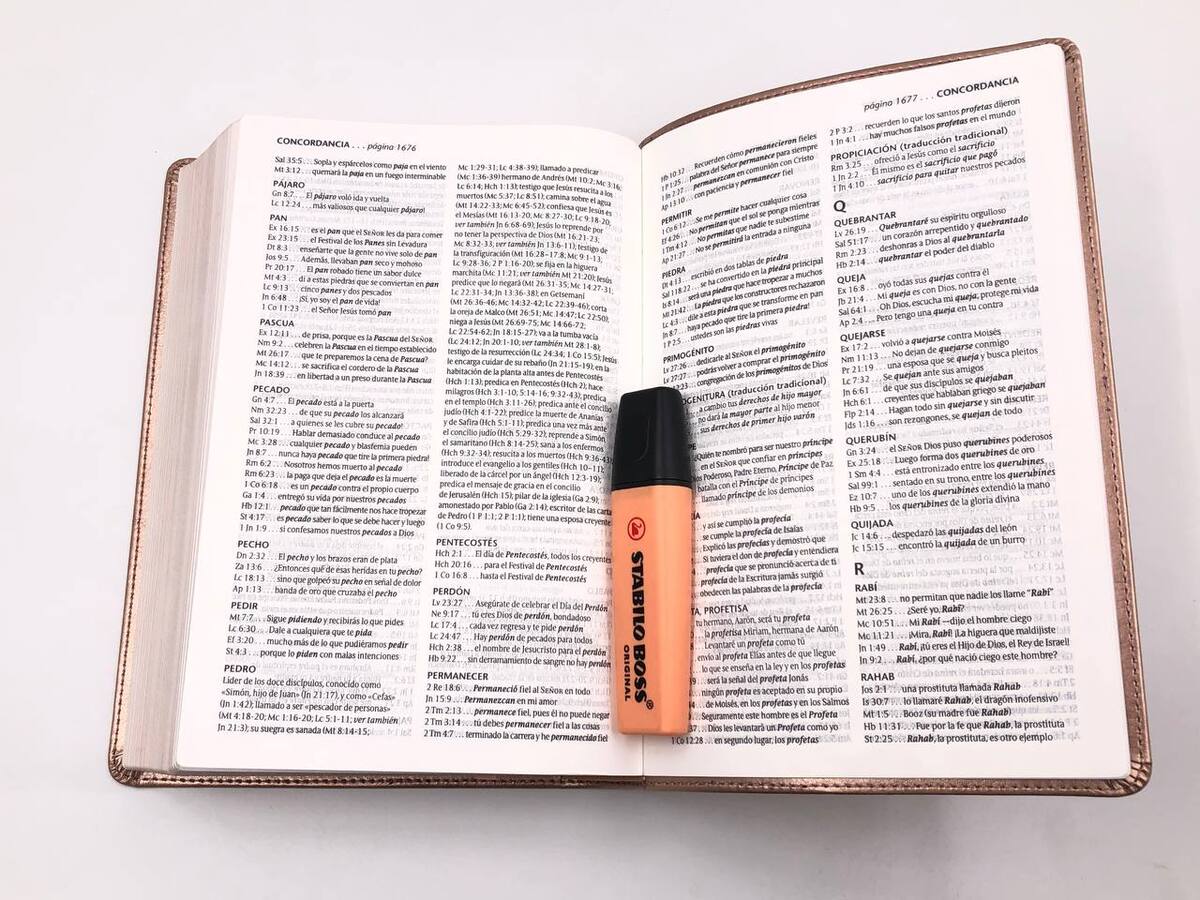 CONCORDANCIA . . . página 1676
Sal 35:5 . . . Sopla y espárcelos como paja en el viento
Mt 3:12 . . . quemará la paja en un fuego interminable
PÁJARO
Gn 8:7 . . . El pájaro voló ida y vuelta
Lc 12:24 . . . más valiosos que cualquier pájaro!
PAN
Ex 16:15 . . . es el pan que el SEÑOR les da para comer
Ex 23:15 . . . el Festival de los Panes sin Levadura
Dt 8:3 . . . enseñarte que la gente no vive solo de pan
Jos 9:5 . . . Además, llevaban pan seco y mohoso
Pr 20:17 . . . El pan robado tiene un sabor dulce
Mt 4:3 . . . di a estas piedras que se conviertan en pan
Lc 9:13 . . . cinco panes y dos pescados
Jn 6:48 . . . ¡Sí, yo soy el pan de vida!
1 Co 11:23 . . . el Señor Jesús tomó pan
PASCUA
Ex 12:11 . . . de prisa, porque es la Pascua del SEÑOR
Nm 9:2 . . . celebren la Pascua en el tiempo establecido
Mt 26:17 . . . que te preparemos la cena de Pascua?
Mc 14:12 . . . se sacrifica el cordero de la Pascua
Jn 18:39 . . . en libertad a un preso durante la Pascua
PECADO
Gn 4:7 . . . El pecado está a la puerta
Nm 32:23 . . . de que su pecado los alcanzará
Sal 32:1 . . . a quienes se les cubre su pecado!
Pr 10:19 . . . Hablar demasiado conduce al pecado
Mc 3:28 . . . cualquier pecado y blasfemia pueden
Jn 8:7 . . . nunca haya pecado que tire la primera piedra!
Rm 6:2 . . . Nosotros hemos muerto al pecado
Rm 6:23 . . . la paga que deja el pecado es la muerte
1 Co 6:18 . . . es un pecado contra el propio cuerpo
Ga 1:4 . . . entregó su vida por nuestros pecados
Hb 12:1 . . . pecado que tan fácilmente nos hace tropezar
St 4:17 . . . es pecado saber lo que se debe hacer y luego
1 Jn 1:9 . . . si confesamos nuestros pecados a Dios
PECHO
Dn 2:32 . . . El pecho y los brazos eran de plata
Za 13:6 . . . ¿Entonces qué de esas heridas en tu pecho?
Lc 18:13 . . . sino que golpeó su pecho en señal de dolor
Ap 1:13 . . . banda de oro que cruzaba el pecho
PEDIR
Mt 7:7 . . . Sigue pidiendo y recibirás lo que pides
Lc 6:30 . . . Dale a cualquiera que te pida
Ef 3:20 . . . mucho más de lo que pudiéramos pedir
St 4:3 . . . porque lo piden con malas intenciones
PEDRO
Líder de los doce discípulos, conocido como
«Simón, hijo de Juan» (Jn 21:17), y como «Cefas»
(Jn 1:42); llamado a ser «pescador de personas»
(Mt 4:18-20; Mc 1:16-20; Lc 5:1-11; ver también
Jn 21:3); su suegra es sanada (Mt 8:14-15;
Mc 1:29-31; Lc 4:38-39); llamado a predicar
(Mc 1:36-39) hermano de Andrés (Mt 10:2; Mc 3:16;
Lc 6:14; Hch 1:13); testigo que Jesús resucita a los
muertos (Mc 5:37; Lc 8:51); camina sobre el agua
(Mt 14:22-33; Mc 6:45-52); confiesa que Jesús es
el Mesías (Mt 16:13-20, Mc 8:27-30; Lc 9:18-20;
ver también Jn 6:68-69); Jesús lo reprende por
no tener la perspectiva de Dios (Mt 16:21-23;
Mc 8:32-33; ver también Jn 13:6-11); testigo de
la transfiguración (Mt 16:28–17:8; Mc 9:1-13,
Lc 9:28-36; 2 P 1:16-20); se fija en la higuera
marchita (Mc 11:21; ver también Mt 21:20); Jesús
predice que lo negará (Mt 26:31-35; Mc 14:27-31;
Lc 22:31-34; Jn 13:36-38); en Getsemaní
(Mt 26:36-46; Mc 14:32-42; Lc 22:39-46); corta
la oreja de Malco (Mt 26:51; Mc 14:47; Lc 22:50);
niega a Jesús (Mt 26:69-75; Mc 14:66-72;
Lc 22:54-62; Jn 18:15-27); va a la tumba vacía
(Lc 24:12; Jn 20:1-10; ver también Mt 28:1-8);
testigo de la resurrección (Lc 24:34; 1 Co 15:5); Jesús
le encarga cuidar de su rebaño (Jn 21:15-19); en la
habitación de la planta alta antes de Pentecostés
(Hch 1:13); predica en Pentecostés (Hch 2); hace
milagros (Hch 3:1-10; 5:14-16; 9:32-43); predica
en el templo (Hch 3:11-26); predica ante el concilio
judío (Hch 4:1-22); predice la muerte de Ananías
y de Safira (Hch 5:1-11); predica una vez más ante
el concilio judío (Hch 5:29-32); reprende a Simón,
el samaritano (Hch 8:14-25); sana a los enfermos
(Hch 9:32-34); resucita a los muertos (Hch 9:36-43)
introduce el evangelio a los gentiles (Hch 10–11);
liberado de la cárcel por un ángel (Hch 12:3-19);
predica el mensaje de gracia en el concilio
de Jerusalén (Hch 15); pilar de la iglesia (Ga 2:9);
amonestado por Pablo (Ga 2:14); escritor de las cartas
de Pedro (1 P 1:1; 2 P 1:1); tiene una esposa creyente
(1 Co 9:5).
PENTECOSTÉS
Hch 2:1 . . . El día de Pentecostés, todos los creyentes
Hch 20:16 . . . para el Festival de Pentecostés
1 Co 16:8 . . . hasta el Festival de Pentecostés
PERDÓN
Lv 23:27 . . . Asegúrate de celebrar el Día del Perdón
Ne 9:17 . . . tú eres Dios de perdón, bondadoso
Lc 17:4 . . . cada vez regresa y te pide perdón
Lc 24:47 . . . Hay perdón de pecados para todos
Hch 2:38 . . . el nombre de Jesucristo para el perdón
Hb 9:22 . . . sin derramamiento de sangre no hay perdón
PERMANECER
2 Re 18:6 . . . Permaneció fiel al SEÑOR en todo
Jn 15:9 . . . Permanezcan en mi amor
2 Tm 2:13 . . . permanece fiel, pues él no puede negar
2 Tm 3:14 . . . tú debes permanecer fiel a las cosas
2 Tm 4:7 . . . terminado la carrera y he permanecido fiel
página 1677 . . . CONCORDANCIA
Hb 10:32 . . . Recuerden cómo permanecieron fieles
1 P 1:25 . . . palabra del Señor permanece para siempre
1 Jn 2:27 . . . permanezcan en comunión con Cristo
Ap 13:10 . . . con paciencia y permanecer fiel
PERMITIR
1 Co 6:12 . . . Se me permite hacer cualquier cosa
Ef 4:26 . . . No permitan que el sol se ponga mientras
1 Tm 4:12 . . . No permitas que nadie te subestime
Ap 21:27 . . . No se permitirá la entrada a ninguna
PIEDRA
Dt 4:13 . . . escribió en dos tablas de piedra
Sal 118:22 . . . se ha convertido en la piedra principal
Is 8:14 . . . será una piedra que hace tropezar a muchos
Mt 21:42 . . . La piedra que los constructores rechazaron
Lc 4:3 . . . dile a esta piedra que se transforme en pan
Jn 8:7 . . . haya pecado que tire la primera piedra!
1 P 2:5 . . . ustedes son las piedras vivas
PRIMOGÉNITO
Lv 27:26 . . . dedicarle al SEÑOR el primogénito
Lv 27:27 . . . podrás volver a comprar el primogénito
12:23 . . . congregación de los primogénitos de Dios
OGENITURA (traducción tradicional)
a cambio tus derechos de hijo mayor
no dará la mayor parte al hijo menor
sus derechos de primer hijo varón
PE
¿Quién te nombró para ser nuestro príncipe
en el SEÑOR que confiar en príncipes
os Poderoso, Padre Eterno, Príncipe de Paz
batalla con el Príncipe de príncipes
llamado príncipe de los demonios
y así se cumplió la profecía
se cumple la profecía de Isaías
Explicó las profecías y demostró que
Si tuviera el don de profecía y entendiera
profecía que se pronunció acerca de ti
profecía de la Escritura jamás surgió
obedecen las palabras de la profecía
TA, PROFETISA
tu hermano, Aarón, será tu profeta
la profetisa Miriam, hermana de Aarón
Levantaré un profeta como tú
envío al profeta Elías antes de que llegue
lo que se enseña en la ley y en los profetas
será la señal del profeta Jonás
ningún profeta es aceptado en su propio
de Moisés, en los profetas y en los Salmos
Seguramente este hombre es el Profeta
3:37 . . . Dios les levantará un Profeta como yo
1 Co 12:28 . . . en segundo lugar, los profetas
2 P 3:2 . . . recuerden lo que los santos profetas dijeron
1 Jn 4:1 . . . hay muchos falsos profetas en el mundo
PROPICIACIÓN (traducción tradicional)
Rm 3:25 . . . ofreció a Jesús como el sacrificio
1 Jn 2:2 . . . Él mismo es el sacrificio que pagó
1 Jn 4:10 . . . sacrificio para quitar nuestros pecados
Q
QUEBRANTAR
Lv 26:19 . . . Quebrantaré su espíritu orgulloso
Sal 51:17 . . . un corazón arrepentido y quebrantado
Rm 2:23 . . . deshonras a Dios al quebrantarla
Hb 2:14 . . . quebrantar el poder del diablo
QUEJA
Ex 16:8 . . . oyó todas sus quejas contra él
Jb 21:4 . . . Mi queja es con Dios, no con la gente
Sal 64:1 . . . Oh Dios, escucha mi queja, protege mi vida
Ap 2:4 . . . Pero tengo una queja en tu contra
QUEJARSE
Ex 17:2 . . . volvió a quejarse contra Moisés
Nm 11:13 . . . No dejan de quejarse conmigo
Pr 21:19 . . . una esposa que se queja y busca pleitos
Lc 7:32 . . . Se quejan ante sus amigos
Jn 6:61 . . . de que sus discípulos se quejaban
Hch 6:1 . . . creyentes que hablaban griego se quejaban
Flp 2:14 . . . Hagan todo sin quejarse y sin discutir
Jds 1:16 . . . son rezongones, se quejan de todo
QUERUBÍN
Gn 3:24 . . . el SEÑOR Dios puso querubines poderosos
Ex 25:18 . . . Luego forma dos querubines de oro
1 Sm 4:4 . . . está entronizado entre los querubines
Sal 99:1 . . . sentado en su trono, entre los querubines
Ez 10:7 . . . uno de los querubines extendió la mano
Hb 9:5 . . . los querubines de la gloria divina
QUIJADA
Jc 14:6 . . . despedazó las quijadas del león
Jc 15:15 . . . encontró la quijada de un burro
R
RABÍ
Mt 23:8 . . . no permitan que nadie los llame "Rabí"
Mt 26:25 . . . ¿Seré yo, Rabí?
Mc 10:51 . . . Mi Rabí —dijo el hombre ciego
Mc 11:21 . . . ¡Mira, Rabí! ¡La higuera que maldijiste
Jn 1:49 . . . Rabí, ¡tú eres el Hijo de Dios, el Rey de Israel!
Jn 9:2 . . . Rabí, ¿por qué nació ciego este hombre?
RAHAB
Jos 2:1 . . . una prostituta llamada Rahab
Is 30:7 . . . lo llamaré Rahab, el dragón inofensivo
Mt 1:5 . . . Booz (su madre fue Rahab)
Hb 11:31 . . . Fue por la fe que Rahab, la prostituta
St 2:25 . . . Rahab, la prostituta, es otro ejemplo
STABILO BOSS®
ORIGINAL